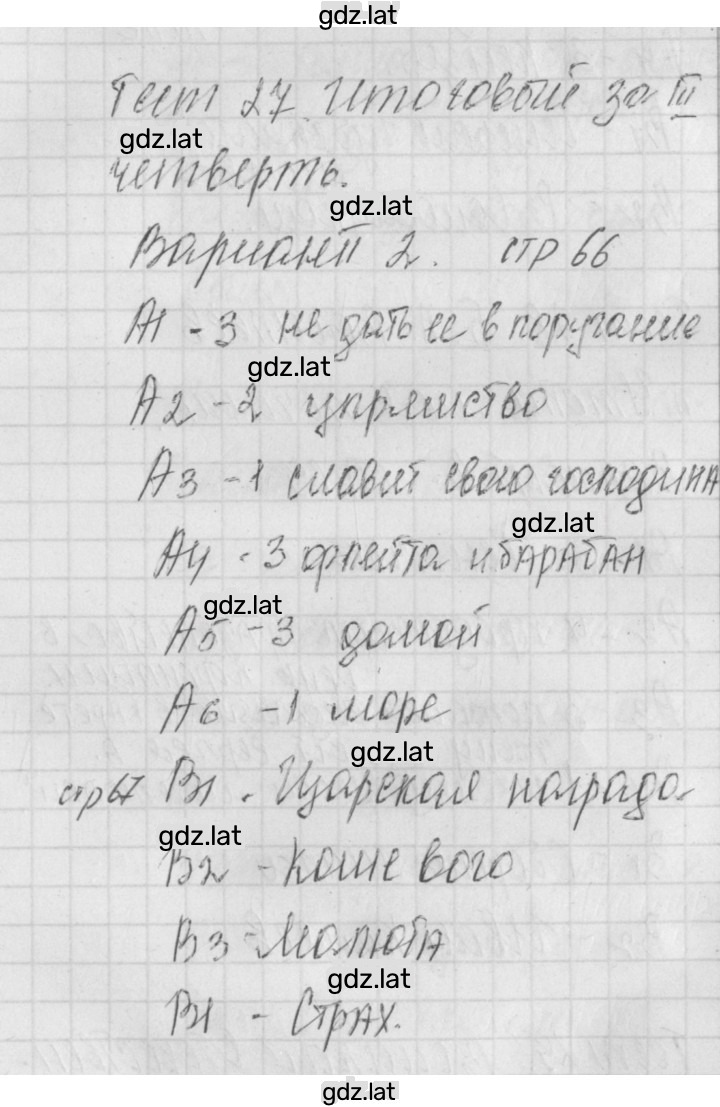 gdz.lat
Тест 27. Итоговый за III
gdz.lat
четверть.
gdz.lat
Вариант 2. стр 66
А1 - 3 не дать ее в поругание
gdz.lat
А2 - 2 упрямство
А3 - 1 славит своего господина
gdz.lat
А4 - 3 флейта и барабан
gdz.lat
А5 - 3 домой
А6 - 1 море
gdz.lat
стр 67 В1 - Царская награда
gdz.lat
В2 - Кошевого
В3 - Малюта
gdz.lat
В1 - Страх.
gdz.lat